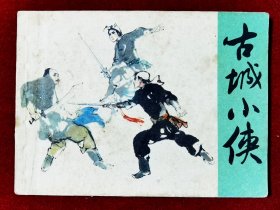 古城小侠